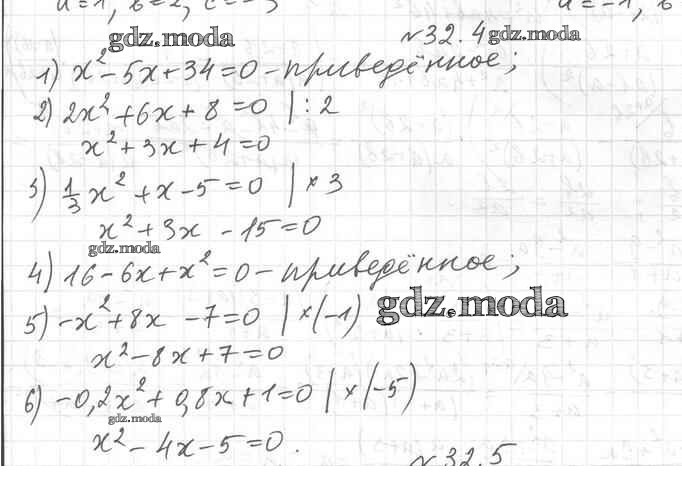 a=1, b=2, c=-3 a=-1, b
gdz.moda №32.4 gdz.moda
1) x² - 5x + 34 = 0 - приведённое;
2) 2x² + 6x + 8 = 0 | : 2
x² + 3x + 4 = 0
3) 1/3 x² + x - 5 = 0 | × 3
x² + 3x - 15 = 0
gdz.moda
4) 16 - 6x + x² = 0 - приведённое;
5) -x² + 8x - 7 = 0 | × (-1) gdz.moda
x² - 8x + 7 = 0
6) -0,2x² + 0,8x + 1 = 0 | × (-5)
gdz.moda
x² - 4x - 5 = 0.
№32.5